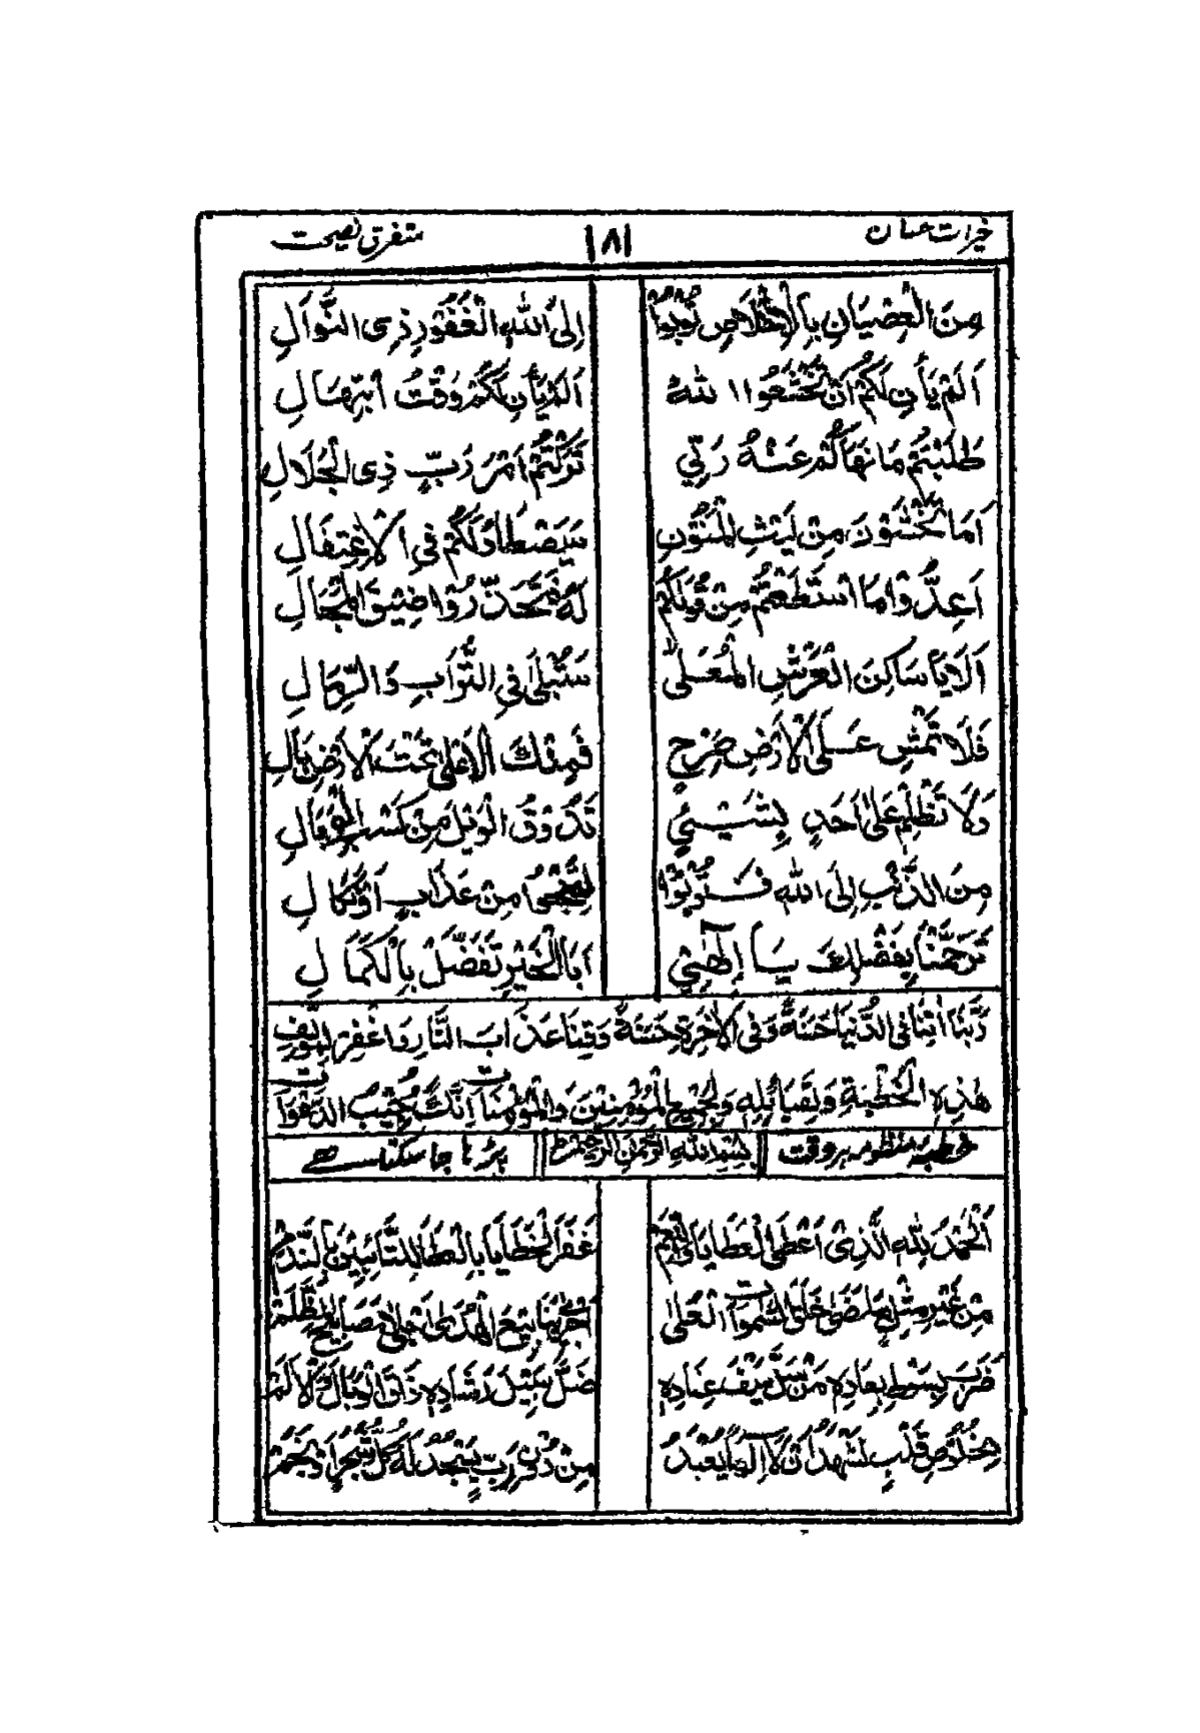 خیرات حسان ۱۸۱ متفرق نصیحت
مِنَ الْعِصْيَانِ بِالْإِخْلَاصِ تُوْبُوْا اِلَى اللهِ الْغَفُوْرِ ذِى النَّوَالِ
اَلَمْ يَأْنِ لَكُمْ اَنْ تَخْشَعُوْا لله اَلَمْ يَأْنِ لَكُمْ وَقْتُ ابْتِهَالِ
طَلَبْتُمْ مَا نَهَاكُمْ عَنْهُ رَبِّي تَرَكْتُمْ اَمْرَ رَبٍّ ذِى الْجَلَالِ
اَمَا تَخْشَوْنَ مِنْ لَيْثِ الْمَنُوْنِ سَيَصْطَادُ لَكُمْ فِى الْاِغْتِفَالِ
اَعِدُّوْا مَا اسْتَطَعْتُمْ مِنْ لَهُ فَتَحَذَّرُوْا ضِيْقَ الْمَجَالِ
اَلَا يَا سَاكِنَ الْعَرْشِ الْمُعَلّٰى سَتُبْلٰى فِى التُّرَابِ وَالرِّمَالِ
فَلَا تَمْشِ عَلَى الْاَرْضِ مَرْحٍ فَمِثْلُكَ الْاَعْلٰى تَحْتَ الْاَرْضِ بَالِ
وَلَا تَظْلِمْ عَلٰى اَحَدٍ بِشَيْئٍ تَذُوْقُ الْوَيْلَ مِنْ كَسْبِ الْفِعَالِ
مِنَ الذَّنْبِ اِلَى اللهِ فَتُوْبُوْا مِنْ عَذَابٍ اَوْ نَكَالِ
تَرَحَّمْنَا بِفَضْلِكَ يَا اِلٰهِيْ اَبَا الْخَيْرِ تَفَضَّلْ بِالْكَمَالِ
رَبَّنَا اٰتِنَا فِى الدُّنْيَا حَسَنَةً وَفِى الْاٰخِرَةِ حَسَنَةً وَقِنَا عَذَابَ النَّارِ وَاغْفِرْ لِمُؤَلِّفِ
هٰذِهِ الْخُطْبَةِ وَلِقَبَائِلِهِ وَلِجَمِيْعِ الْمُؤْمِنِيْنَ وَالْمُؤْمِنَاتِ اِنَّكَ مُجِيْبُ الدَّعْوَاتِ
خطبہ منظومہ ہر وقت بِسْمِ اللهِ الرَّحْمٰنِ الرَّحِيْمِ پڑھا جا سکتا ہے
اَلْحَمْدُ لِلّٰهِ الَّذِىْ اَعْطَى الْعَطَايَا غَفَرَ الْخَطَايَا بِالْعَطَا لِلتَّائِبِيْنَ بِالنَّدَمْ
مِنْ غَيْرِ مِثْلٍ مَا مَضٰى خَلَقَ السَّمٰوَاتِ الْعُلٰى اَجْرٰى يَنَابِيْعَ الْهُدٰى اَجْلٰى مَصَابِيْحَ الظُّلَمْ
ضَرَبَ بِسَوْطِ بِعَادِهِ مَنْ سَلَّ سَيْفَ عِنَادِهِ ضَلَّ سَبِيْلَ رَشَادِهِ ذَاقَ الْوَبَالَ وَالْاَلَمْ
بِخُلُوْصِ قَلْبٍ نَشْهَدُ اَنْ لَا اِلٰهًا يُعْبَدُ مِنْ دُوْنِ رَبٍّ يَسْجُدُ لَهُ كُلُّ شَجَرٍ وَنَجَمْ